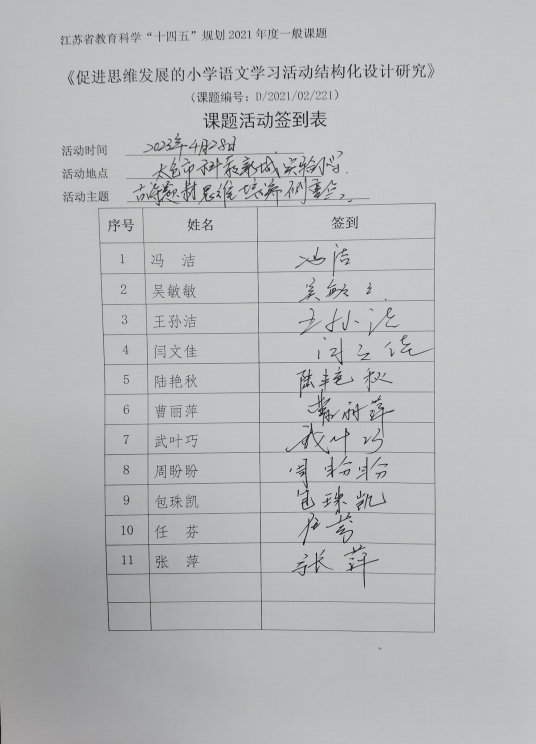 江苏省教育科学“十四五”规划 2021 年度一般课题
《促进思维发展的小学语文学习活动结构化设计研究》
（课题编号：D/2021/02/221）
课题活动签到表
活动时间 2023年4月28日
活动地点 太仓市科教新城实验小学
活动主题 古诗题材思维培养研重会
序号 姓名 签到
1 冯 洁 冯洁
2 吴敏敏 吴敏敏
3 王孙洁 王孙洁
4 闫文佳 闫文佳
5 陆艳秋 陆艳秋
6 曹丽萍 曹丽萍
7 武叶巧 武叶巧
8 周盼盼 周盼盼
9 包珠凯 包珠凯
10 任 芬 任芬
11 张 萍 张萍